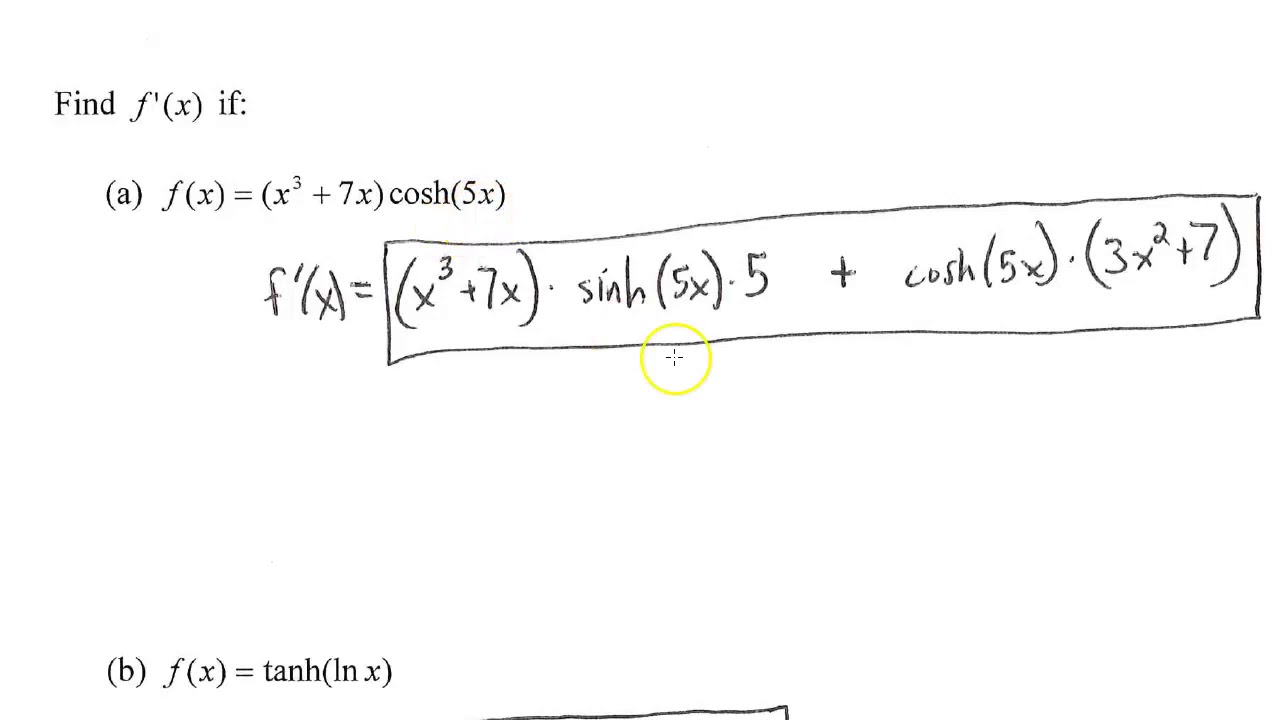 Find f'(x) if:
(a) f(x) = (x³ + 7x) cosh(5x)
f'(x) = (x³+7x) · sinh(5x) · 5 + cosh(5x) · (3x²+7)
(b) f(x) = tanh(ln x)